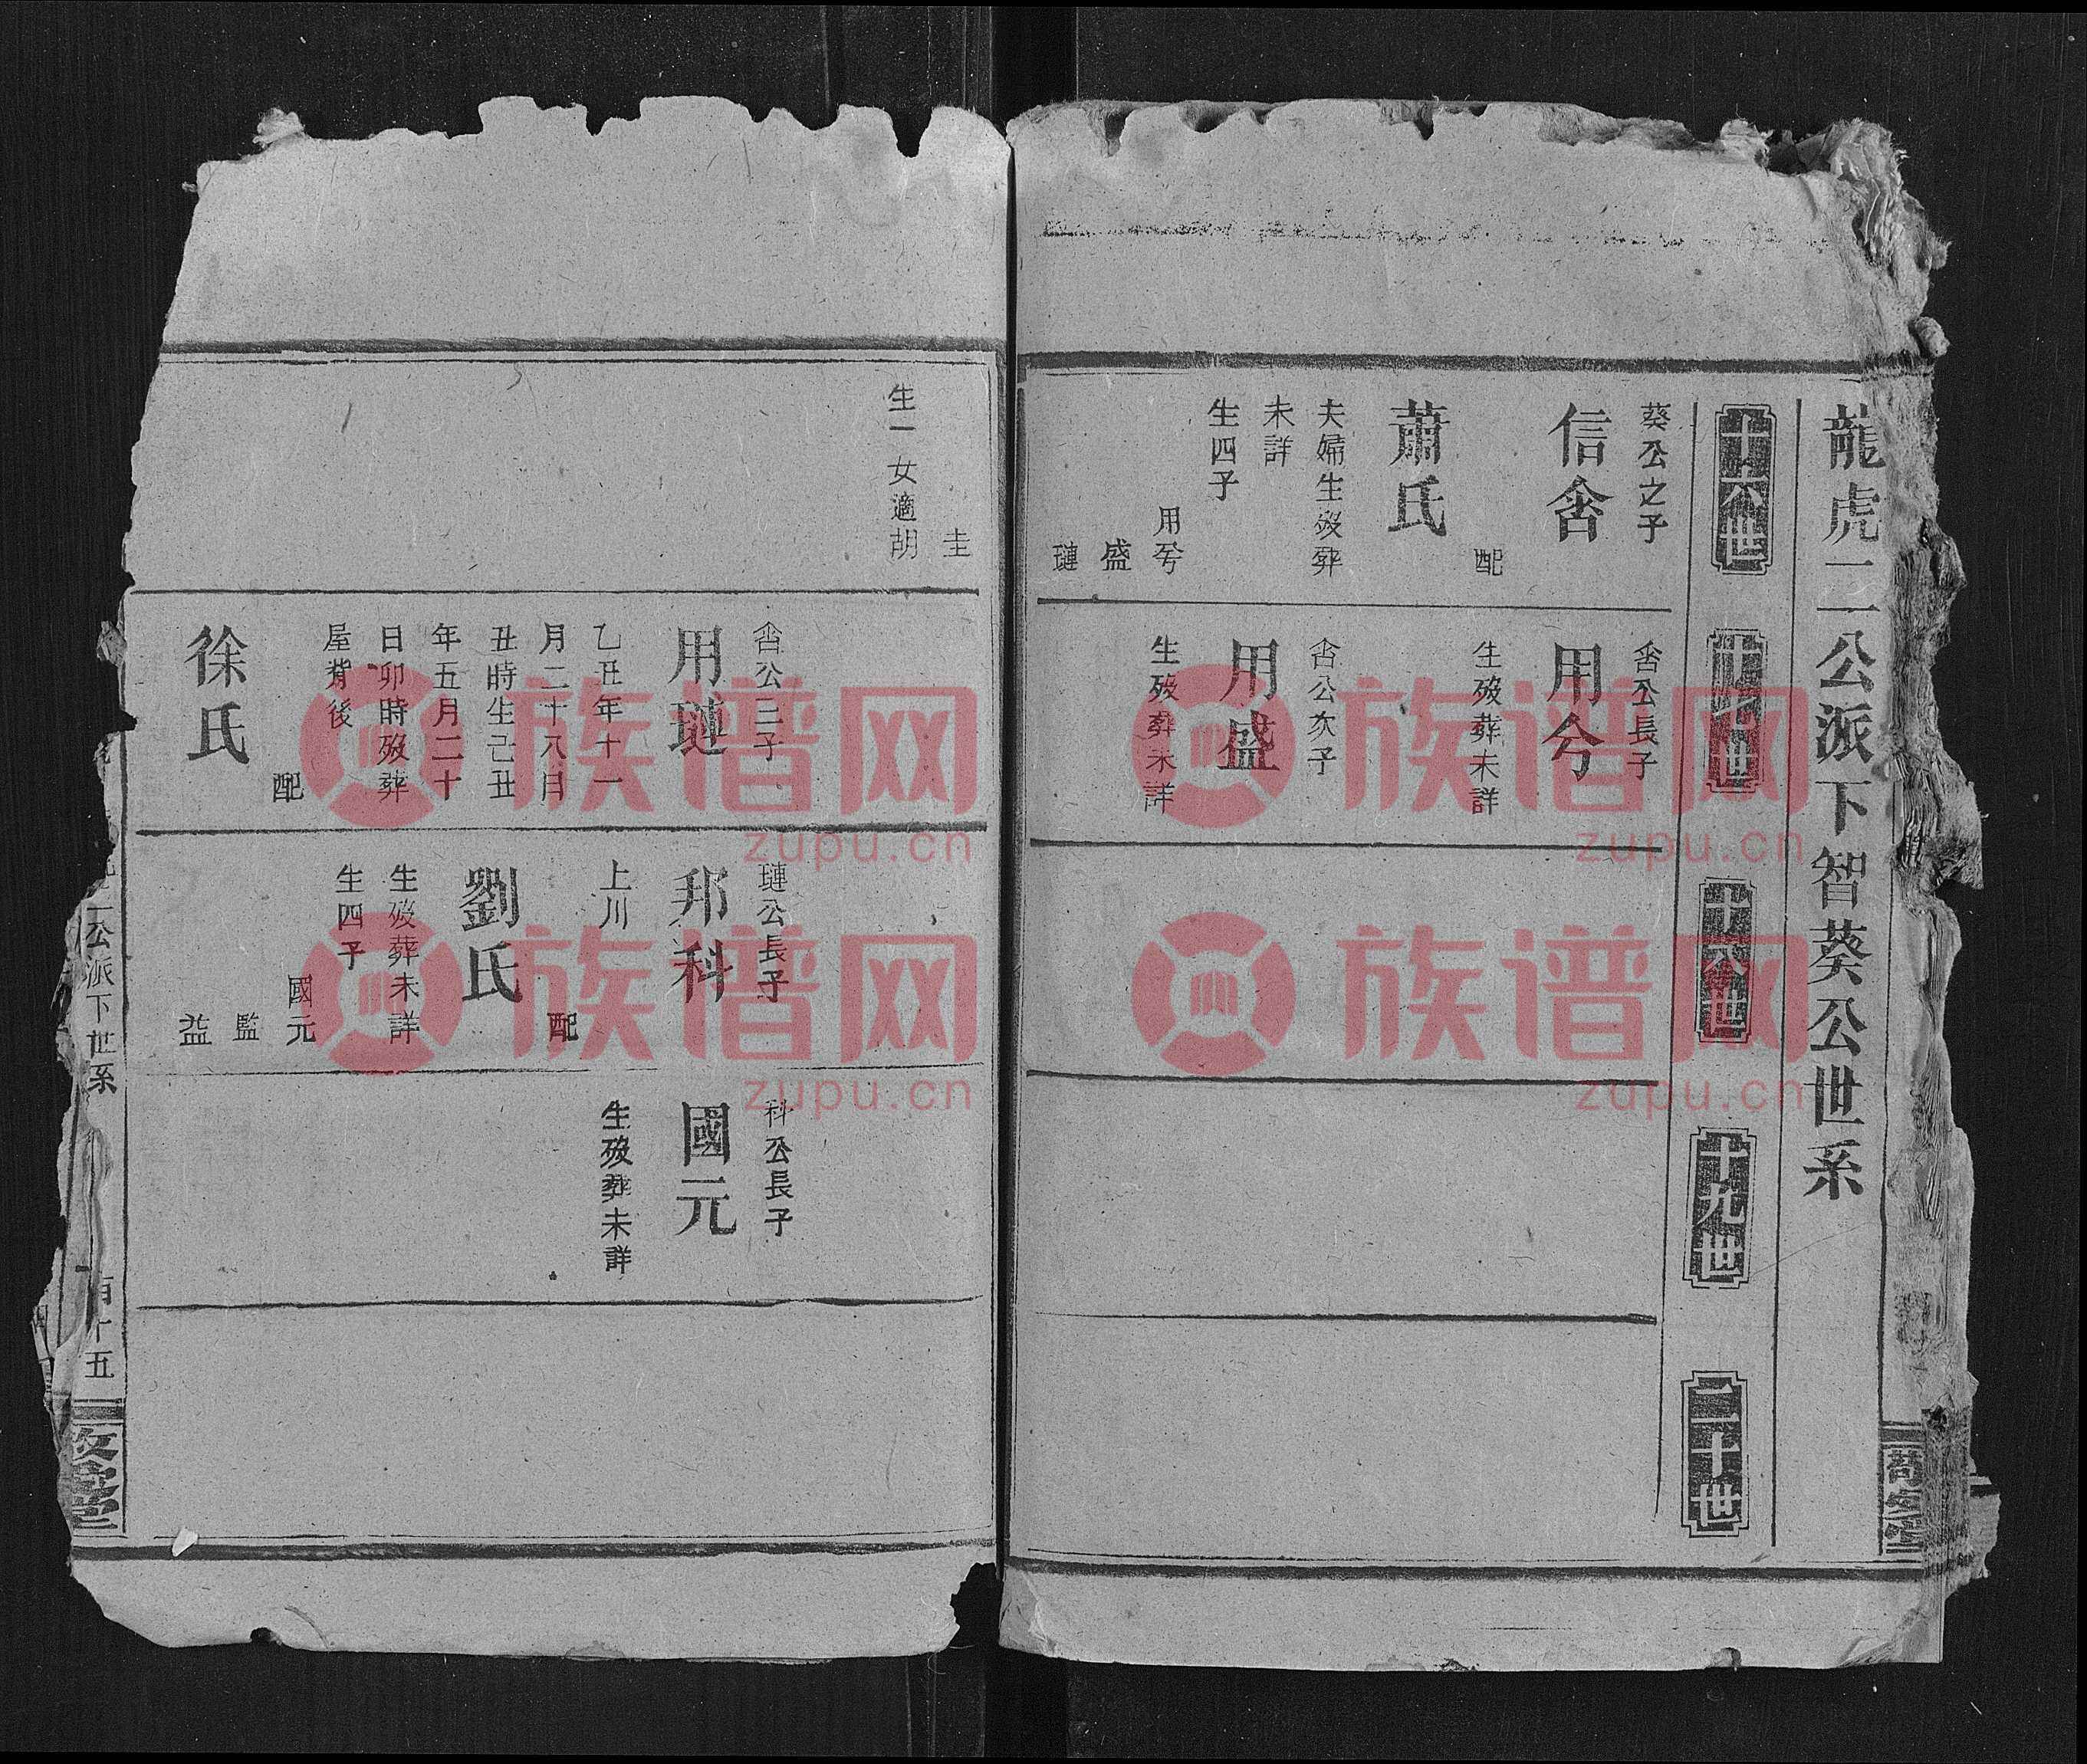 龍虎二公派下智葵公世系
十六世
十七世
十八世
十九世
二十世
葵公之子
信畬
配
蕭氏
夫婦生歿葬
未詳
生四子
用兮
盛
璉
畬公長子
用兮
生歿葬未詳
畬公次子
用盛
生歿葬未詳
圭
生一女適胡
畬公三子
用璉
乙丑年十一
月二十八日
丑時生己丑
年五月二十
日卯時歿葬
屋背後
配
徐氏
璉公長子
邦科
上川
配
劉氏
生歿葬未詳
生四子
國元
監
益
科公長子
國元
生歿葬未詳
二公派下世系
十五
族谱网
zupu.cn
族谱网
zupu.cn
族谱网
zupu.cn
族谱网
zupu.cn